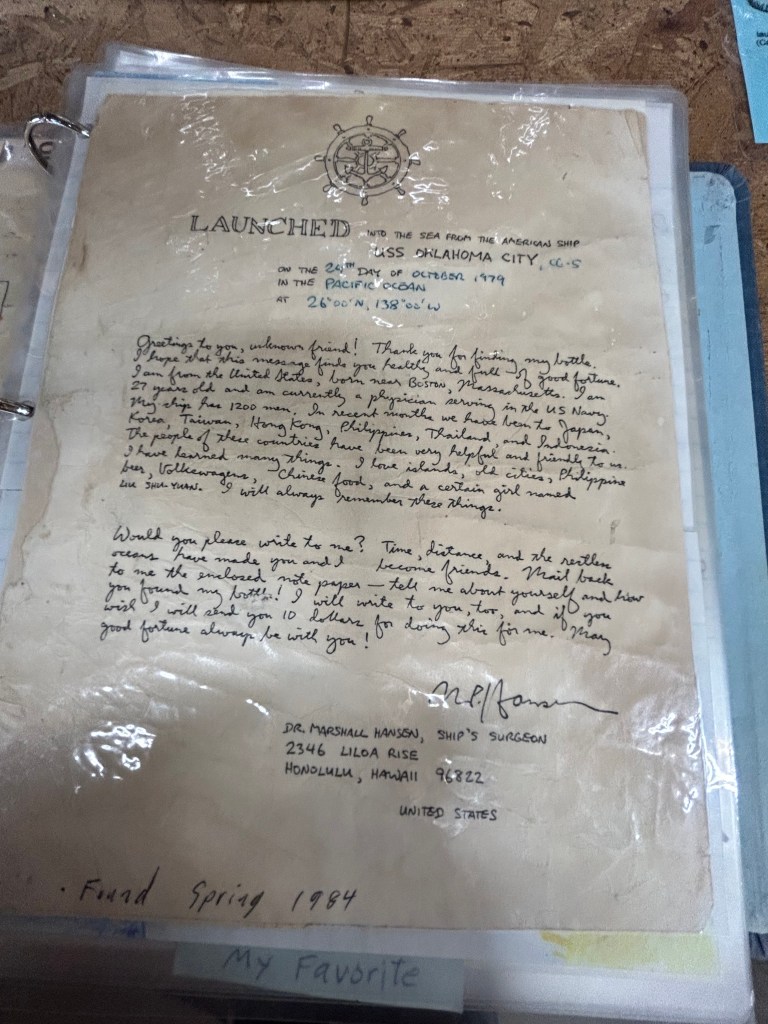 LAUNCHED INTO THE SEA FROM THE AMERICAN SHIP
USS OKLAHOMA CITY, CG-5
ON THE 24TH DAY OF OCTOBER 1979
IN THE PACIFIC OCEAN
AT 26°00'N, 138°00'W
Greetings to you, unknown friend! Thank you for finding my bottle.
I hope that this message finds you healthy and full of good fortune.
I am from the United States, born near BOSTON, Massachusetts. I am
27 years old and am currently a physician serving in the US Navy.
My ship has 1200 men. In recent months we have been to Japan,
Korea, Taiwan, Hong Kong, Philippines, Thailand, and Indonesia.
The people of these countries have been very helpful and friendly to us.
I have learned many things. I love islands, old cities, Philippine
beer, Volkswagens, Chinese food, and a certain girl named
LIU SHU-YUAN. I will always remember these things.
Would you please write to me? Time, distance, and the restless
oceans have made you and I become friends. Mail back
to me the enclosed note paper — tell me about yourself and how
you found my bottle! I will write to you, too, and if you
wish I will send you 10 dollars for doing this for me. May
good fortune always be with you!
DR. MARSHALL HANSEN, SHIP'S SURGEON
2346 LILOA RISE
HONOLULU, HAWAII 96822
UNITED STATES
. Found Spring 1984
My Favorite